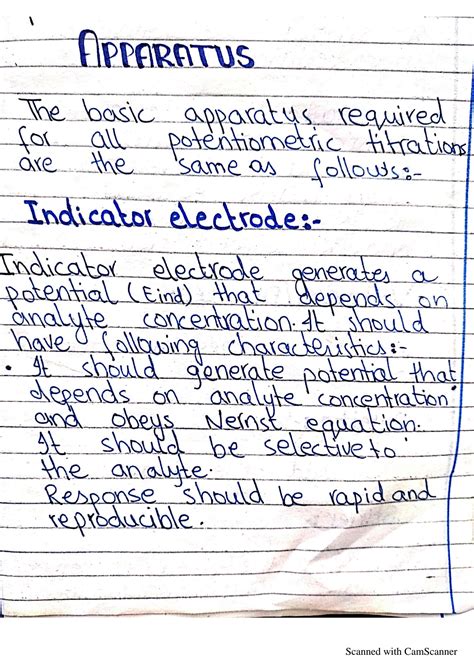 APPARATUS
The basic apparatus required
for all potentiometric titrations
are the same as follows:-
Indicator electrode:-
Indicator electrode generates a
potential (Eind) that depends on
analyte concentration. It should
have following characteristics:-
• It should generate potential that
depends on analyte concentration
and obeys Nernst equation.
It should be selective to
the analyte.
Response should be rapid and
reproducible.
Scanned with CamScanner